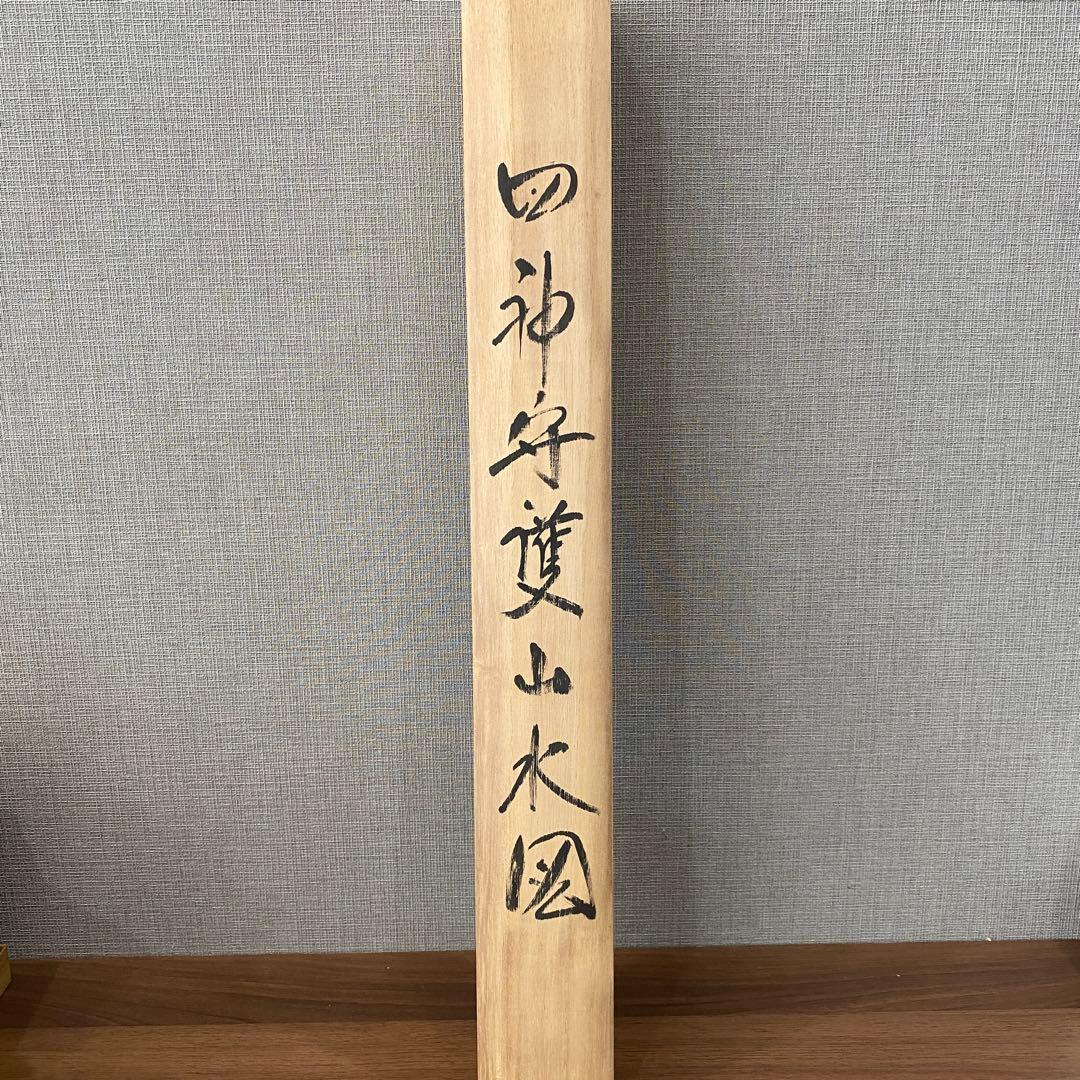 四神守護山水図